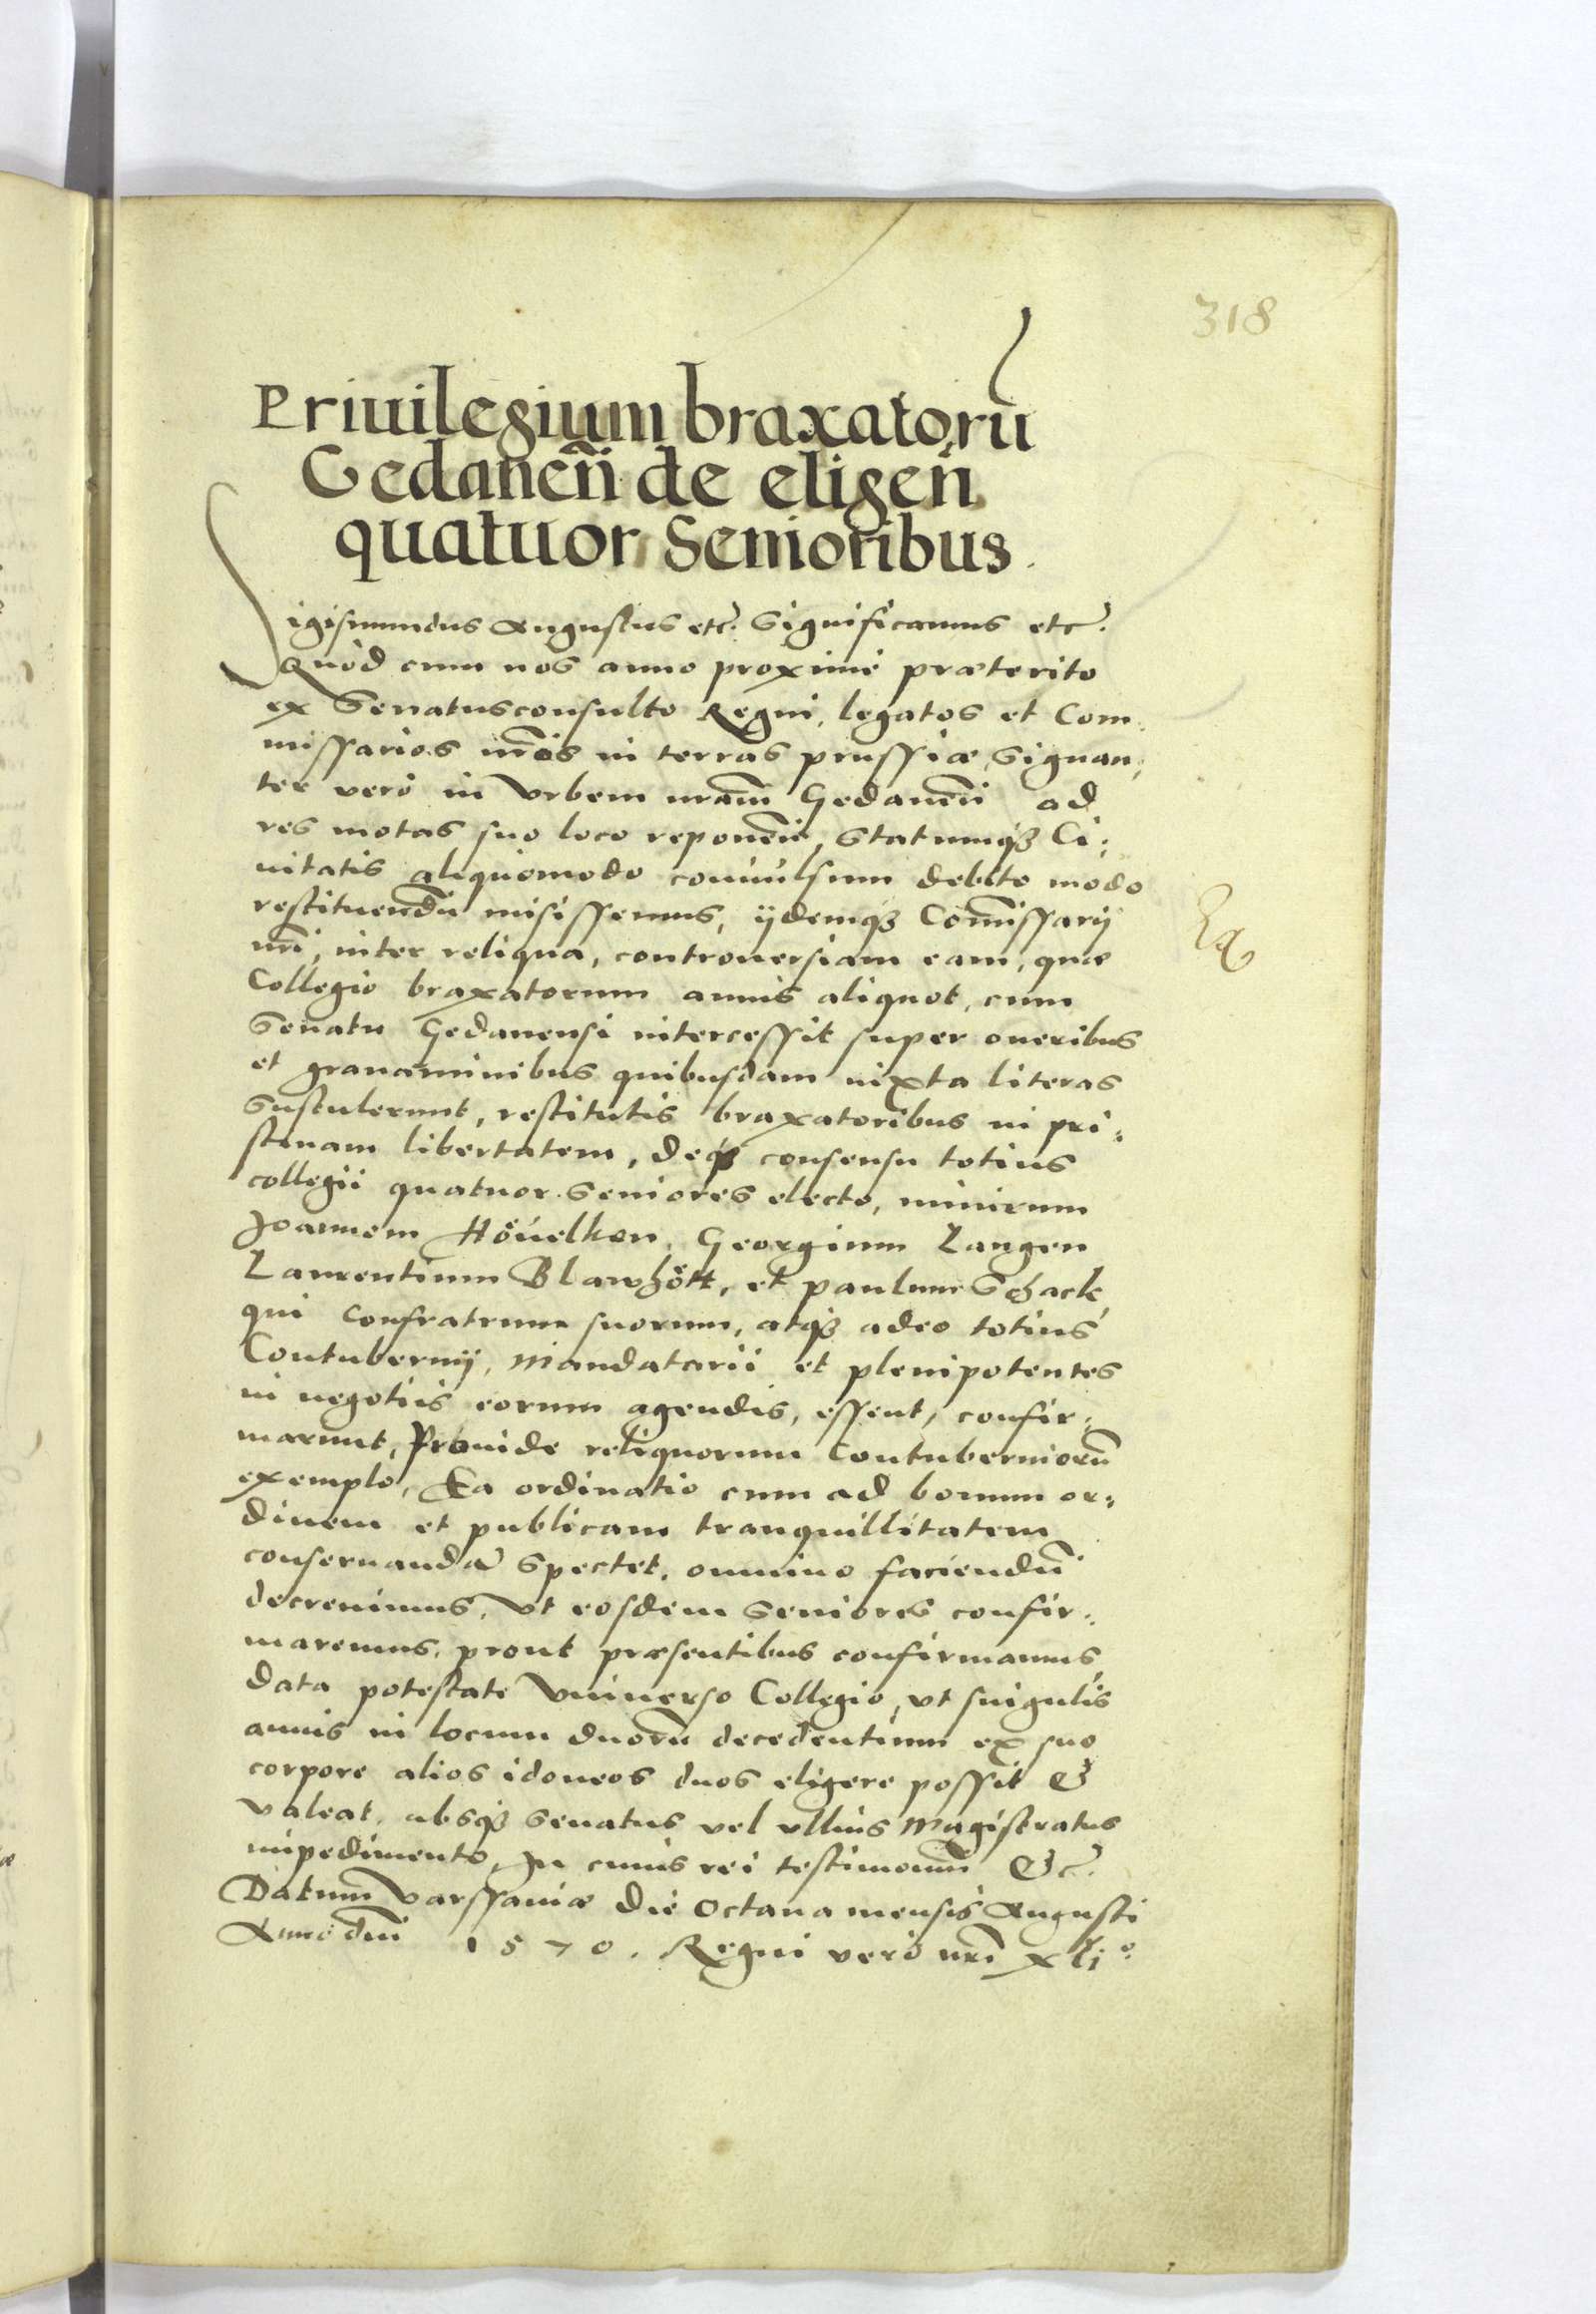 318
Priuilegium braxatorũ
Gedaneñ de eligeñ
quatuor Senioribus.
Sigismundus Augustus etc. Significamus etc.
Quòd cum nos anno proximè præterito
ex Senatusconsulto Regni, legatos et Com:
missarios nr̃os in terras prussiæ, signan:
ter verò in Vrbem nr̃am Gedaneñ ad
res motas suo loco reponeñ, statumqꝫ Ci:
uitatis aliquomodo conuulsum debito modo
restituendũ misissemus, ijdemqꝫ Com̃issarij
nr̃i, inter reliqua, controuersiam eam, quæ
Collegio braxatorum annis aliquot, cum
Senatu Gedanensi intercessit super oneribus
et grauaminibus quibusdam iuxta literas
sustulerunt, restitutis braxatoribus in pri:
stinam libertatem, deqꝫ consensu totius
collegii quatuor Seniores electo, nimirum
Joannem Höuelken, Georgium Langen
Laurentium Blawhött, et paulum Schack
qui confratrum suorum, atqꝫ adeo totius
Contubernij, Mandatarii et plenipotentes
in negotiis eorum agendis, essent, confir:
marunt, Prouide reliquorum Contuberniorũ
exemplo, Ea ordinatio cum ad bonum or:
dinem et publicam tranquillitatem
conseruandã spectet, omnino faciendũ
decreuimus, Vt eosdem Seniores confir:
maremus, prout præsentibus confirmamus
data potestate Vniuerso Collegio, vt singulis
annis in locum duorũ decedentium ex suo
corpore alios idoneos duos eligere possit &
valeat, absqꝫ Senatus vel vllius Magistratus
impedimento, In cuius rei testimoniũ &c.
Datum Varssauiæ die Octaua mensis Augusti
Anno dñi 1570. Regni verò nr̃i xlj°